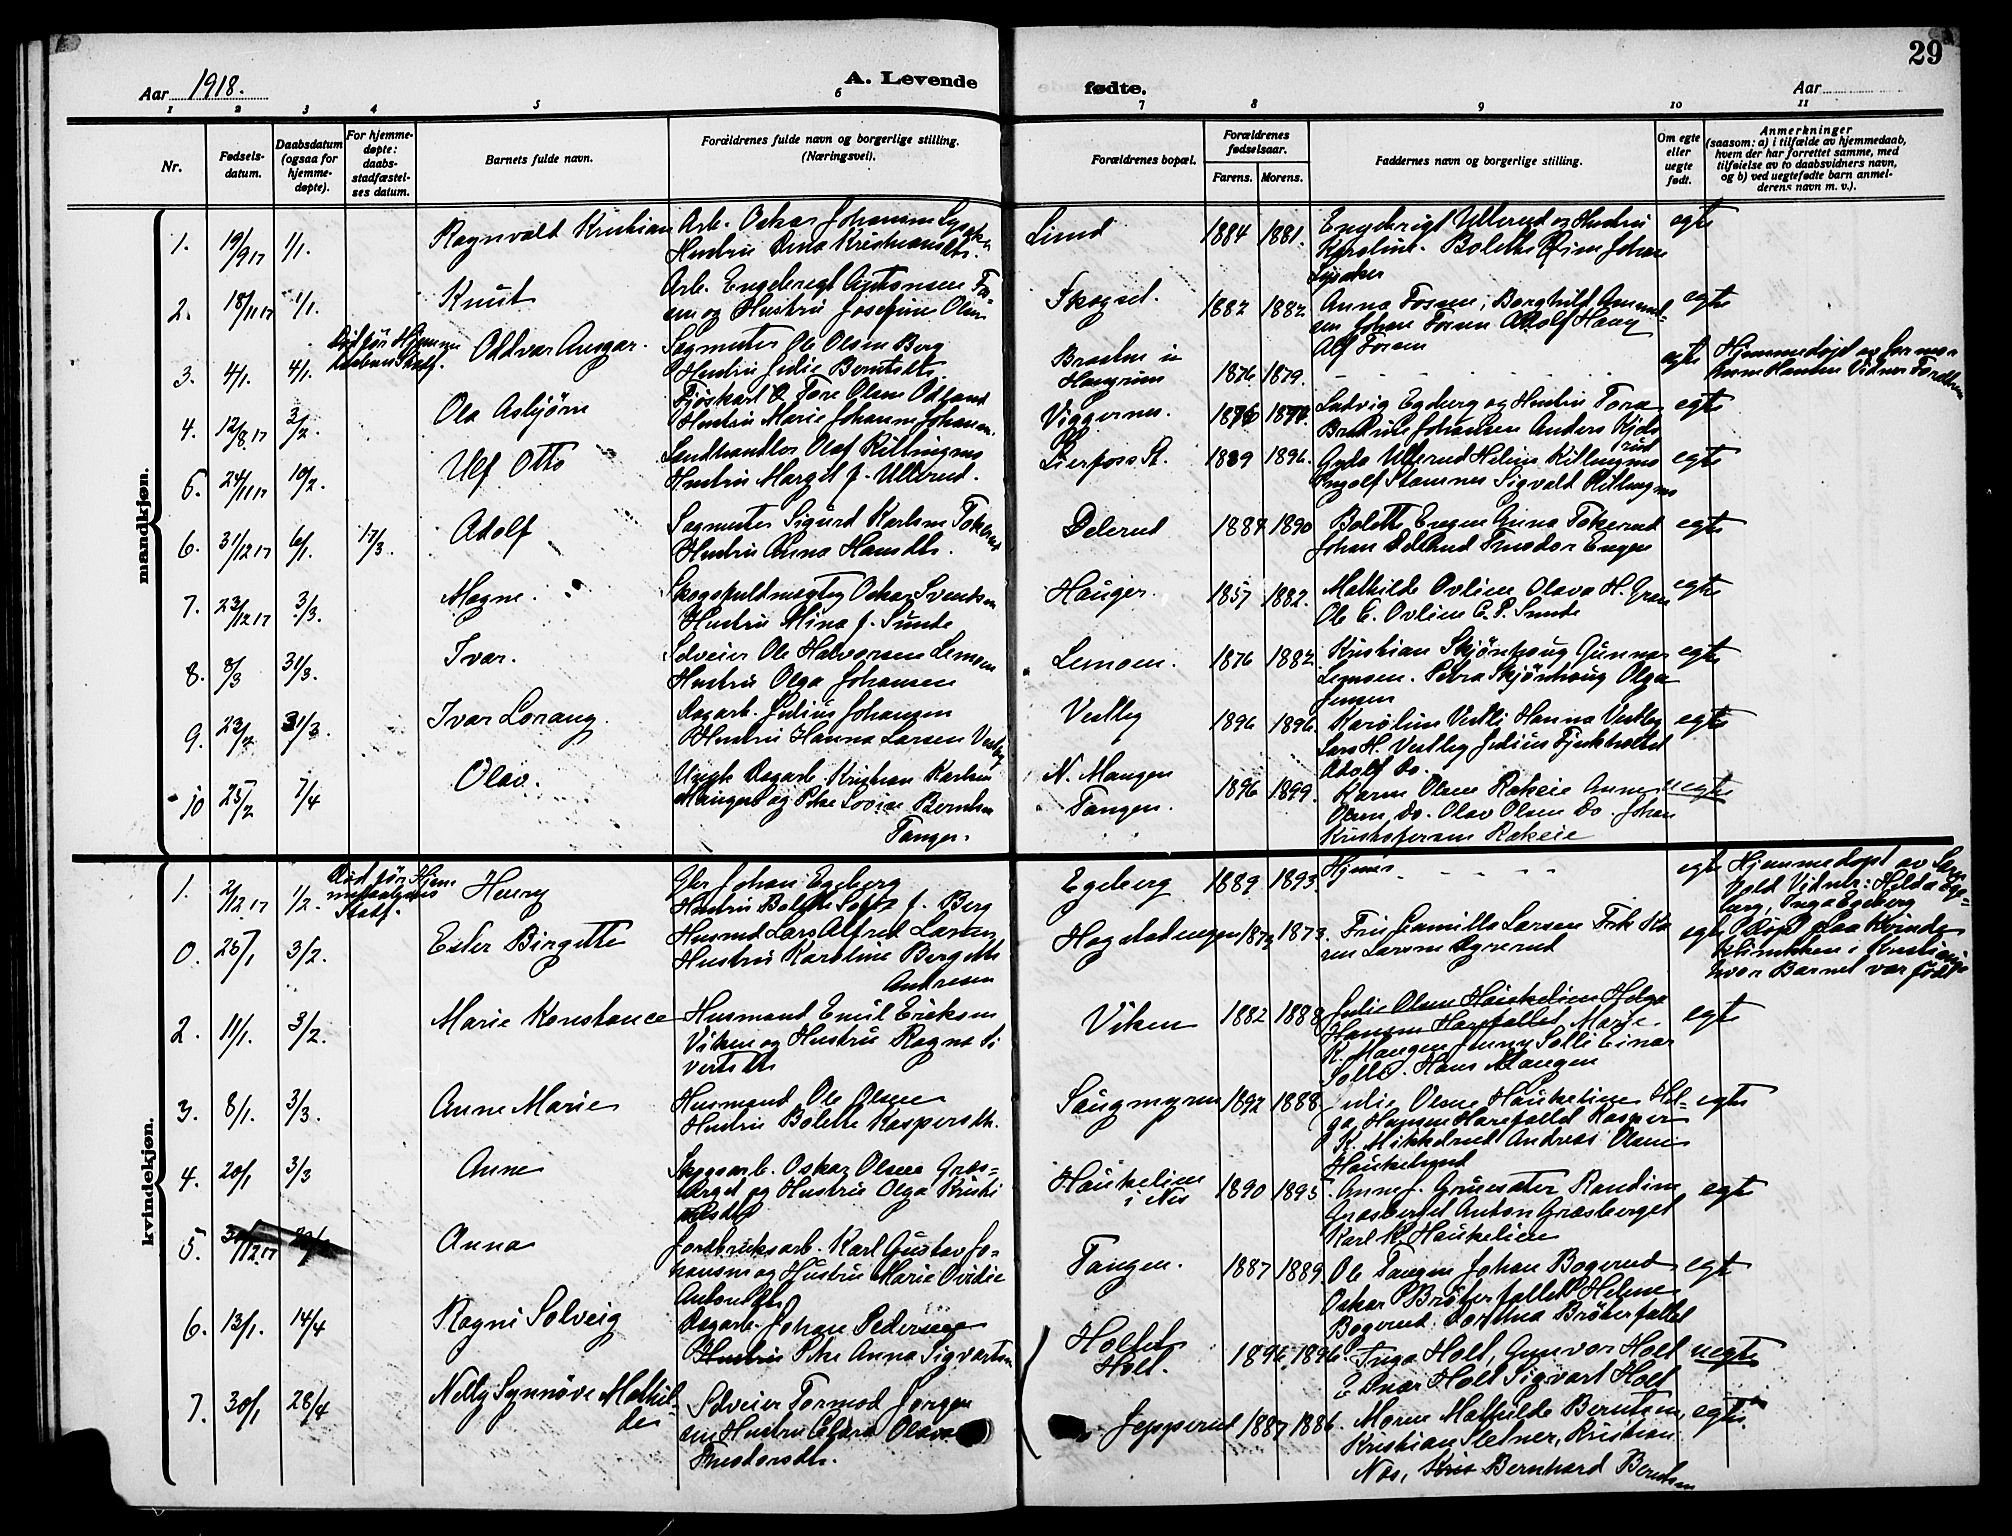 29
Aar 1918.
A. Levende
fødte.
Aar
1 2 3 4 5 6 7 8 9 10 11
Nr.
Fødsels-
datum.
Daabsdatum
(ogsaa for
hjemme-
døpte).
For hjemme-
døpte:
daabs-
stadfæstel-
ses datum.
Barnets fulde navn.
Forældrenes fulde navn og borgerlige stilling.
(Næringsvei).
Forældrenes bopæl.
Forældrenes
fødselsaar.
Farens. Morens.
Faddernes navn og borgerlige stilling.
Om egte
eller
uegte
født.
Anmerkninger
(saasom: a) i tilfælde av hjemmedaab,
hvem der har forrettet samme, med
tilføielse av to daabsvidners navn,
og b) ved uegtefødte barn anmel-
derens navn m. v.).
mandkjøn.
1. 19/9 17 1/1.
Ragnvald Kristian
Arb. Oskar Johansen Lysaker
Hustru Anna Kristiansdtr.
Lund
1884 1881.
Engebrigt Ullerud og Hustru
Karoline. Bolette Johan
Lysaker
egte
2. 18/11 17 1/1.
Knut
Arb. Engebregt Antonsen Fo-
sen og Hustru Josefine Olsen
Skogset.
1882 1882
Anna Fosen, Borghild Amund-
sen Johan Fosen Adolf Haug
Alf Fosen
egte
3. 4/1. 4/1.
Død før Hjemme
daabens Stadf.
Oddvar Ansgar.
Sagmester Ole Olsen Berg
Hustru Julie Berntsdtr.
Braaten i
Haugrim
1876 1879.
egte
Hjemmedøpt av farmor
Vidner Foreldrene
4. 12/8 17 3/2.
Ola Asbjørn
Fjøskarl O. Tore Olsen
Hustru Marie Johanne Johansen.
Viggernes.
Ludvig Egeberg og Hustru Tora
Johansen Anders
rud
egte
5. 24/11 17 10/2.
Ulf Otto
Landhandler Olaf Killingmo
Hustru Margit f. Ullerud.
Lierfoss St.
1889 1896.
Gyda Ullerud Helene Killingmo
Ingolf Stamnes Sigvald Killingmo
egte
6. 31/12 17 6/1. 17/3.
Adolf
Sagmester Sigurd Karlsen Tokerud
Hustru Anna Hansdtr.
Delerud
1884 1890
Bolette Engen Anna Tokerud
Johan Delerud Theodor Engen
egte
7. 23/12 17 3/3.
Magne.
Skogsfuldmægtig Oskar Svendsen
Hustru Mina f. Sunde
Hauger.
1857 1882.
Mathilde Ovlien Olava H. Gran
Ole E. Ovlien E. P. Sunde
egte
8. 8/3 31/3.
Ivar.
Selveier Ole Halvorsen Lemoen
Hustru Olga Johansen
Lemoen.
1876 1882
Kristian Skjønhaug Gunnar
Lemoen. Petra Skjønhaug Olga
Jensen
egte
9. 23/2 31/3.
Ivar Lorang.
Dagarb. Julius Johansen
Hustru Hanna Larsen Vestby
Vestby
1896 1896.
Karoline Vestli Hanna Vestby
Lars H. Vestby Julius
Adolf Do.
egte
10 25/2 7/4
Olav.
Ungk. Dagarb. Kristian Karlsen
Mangen og Pike Lovise Berntsen
Tangen.
N. Mangen
Tangen.
1896 1899.
Karen Olsen Rakeie Anna
Olsen, do. Olav Olsen Do. Johan
Kristofersen Rakeie
uegte
kvindekjøn.
1. 2/12 17 1/2.
Død før Hjem-
medaabens
Stadf.
Henry
Gbr Johan Egeberg
Hustru Bolette Sofie f. Berg
Egeberg
1889 1893
Hjemme
egte
Hjemmedøpt av
Vold Vidner: Hilda Ege-
berg, Inga Egeberg
0. 25/1 3/2.
Ester Birgitte
Husmd Lars Alfred Larsen
Hustru Karoline Bergette
Andresen
1873.
Fru Camilla Larsen Frk Ka-
ren Larsen
egte
Døpt paa Kvinde-
klinikken i Kristiania
hvor Barnet var født
2. 11/1. 3/2.
Marie Konstance
Husmand Emil Eriksen
Viken og Hustru Ragna Si-
vertsdtr
Viken
1882 1888
Julie Olsen Haukelien Helga
Hansen Harefallet Marie
K. Mangen Jenny Solli Einar
Solli. Hans Mangen
egte
3. 8/1. 3/3.
Anne Marie
Husmand Ole Olsen
Hustru Bolette Kaspersdtr.
Saugmyren
1892 1888
Julie Olsen Haukelien Hel-
ga Hansen Harefallet Kasper
K. Mikkelrud Andreas Olsen
Haukelund
egte
4. 20/1 3/3
Anne
Skogsarb. Oskar Olsen Græs-
berget og Hustru Olga Kristi-
ansdtr
Haukelien
i Nes
1890 1895
Anne J. Gruesater Randine
Græsberget Anton Græsberget
Karl K. Haukelien
egte
5.
Anna
Jordbruksarb. Karl Gustav Jo-
hansen og Hustru Marie Ovidie
Antonsdtr
Tangen.
1887 1889
Ole Tangen Johan Bogerud
Oskar Brøterfallet Helene
Bogerud. Dorthea Brøterfallet
egte
6. 13/1. 14/4
Ragni Solveig
Dagarb. Johan Pedersen
Hustru Pike Anna Sigvartsen
Holtet
Holt.
1896 1896.
Inga Holt, Gunvor Holt
Einar Holt Sigvart Holt
uegte
7. 30/1 28/4
Nelly Synnøve Mathil-
de
Selveier Tormod Jørgen-
sen Hustru Clara Olava
Theodorsdtr.
Jepperud
1887 1886.
Maren Mathilde Berntsen,
Kristian Sletner, Kristian
Nos, Kris Bernhard Berntsen
egte